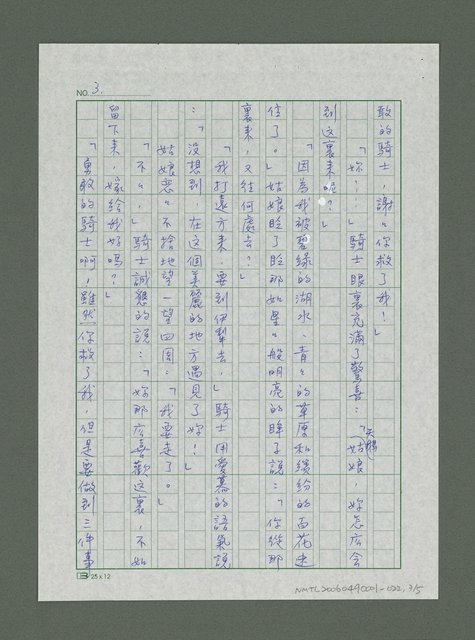 NO. 3.
敢的騎士，謝々你救了我！」
「妳……」騎士眼裏充滿了驚喜：「天鵝姑娘，妳怎広会
到這裏来呢？」
「因為我被碧緑的湖水、青々的草原和繽紛的百花迷
住了。」姑娘眨了眨那如星々般明亮的眸子說：「你從那
裏来，又往何處去？」
「我打遠方来，要到伊犁去，」騎士用愛慕的語氣說
：「没想到，在這個美麗的地方遇見了妳！」
姑娘恋々不捨地望一望四周：「我要走了。」
「不々，」騎士誠懇的說：「妳那広喜歡這裏，不如
留下来，嫁給我好嗎？」
「勇敢的騎士啊，雖然你救了我，但是要做到三件事
25x12
NMTL20060490001-022, 3/5